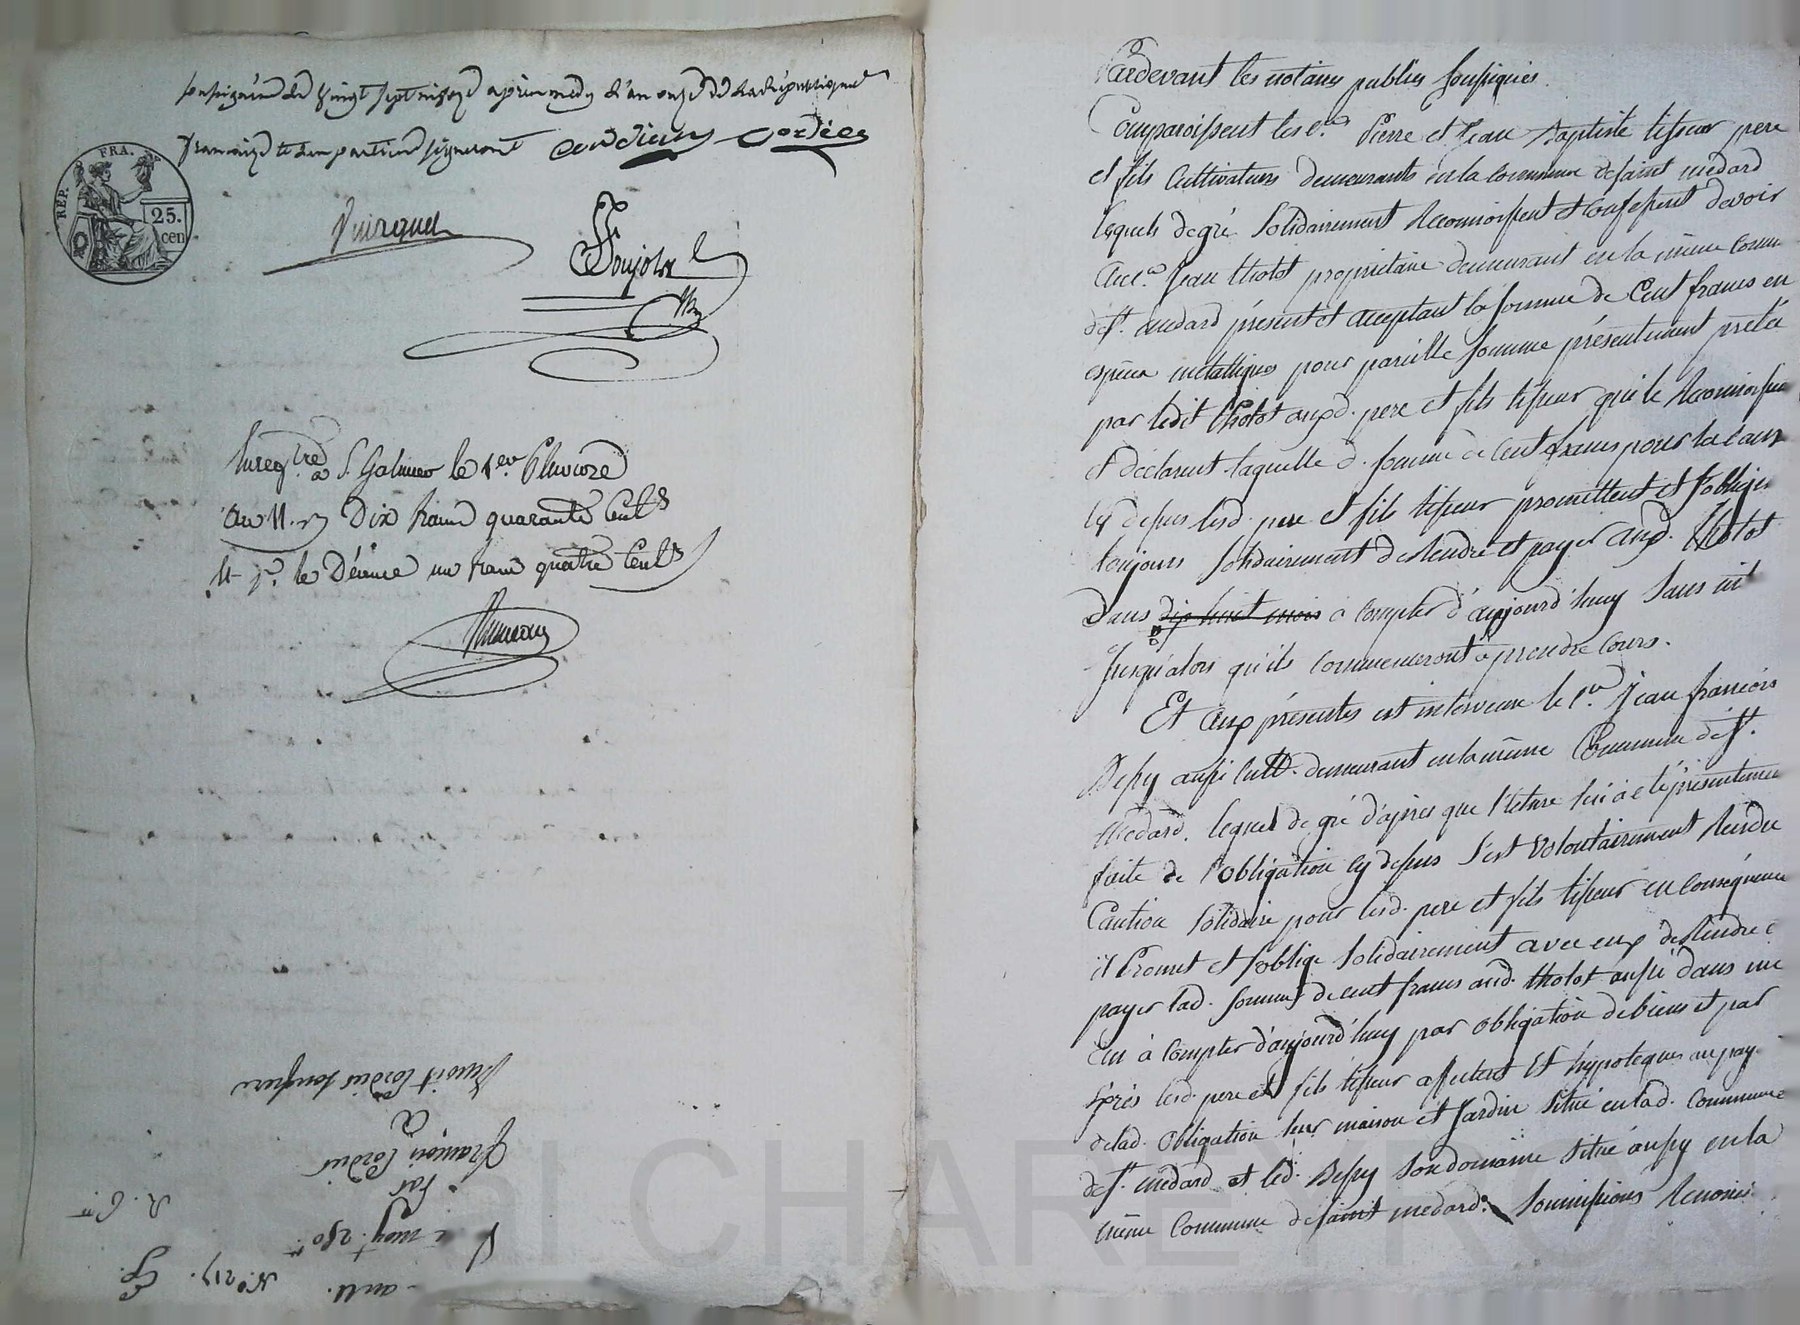 soussignés le vingt sept nivose après midy l'an onze de la république
française les parties signeront Cordier Cordier
REP. FRA.
25.
cen
Enregtré à St Galmier le 1er Pluviose
an 11. Dix francs quarante Cent.s
le Décime un franc quatre Cent.s
an 11.
N.o 217.
François Cordier
par
Benoit Cordier
Pardevant les notaires publics soussignés.
Comparoissent les c.ns Pierre et Jean Baptiste tisseur pere
et fils cultivateurs demeurants en la commune de saint medard
lesquels de gré solidairement Reconnoissent et confessent devoir
au c.en Jean thotot proprietaire demeurant en la même comm
de St. medard présent et acceptant la somme de Cent francs en
espèces métalliques pour pareille somme présentement pretée
par ledit thotot auxd. pere et fils tisseur qui le Reconnoissen
et déclarent laquelle d. somme de cent francs pour la cause
cy dessus lesd. pere et fils tisseur promettent et s'oblige
toujours solidairement de Rendre et payer aud. thotot
dans dix huit mois à compter d'aujourd'huy sans int
jusqu'alors qu'ils commenceront à prendre cours.
Et aux présentes est intervenu le c.en Jean françois
aussi cult. demeurant en la même Commune de St.
medard. lequel de gré d'après que lecture lui a eté présentement
faite de l'obligation cy dessus s'est volontairement Rendu
Caution solidaire pour lesd. pere et fils tisseur en conséquence
il Promet et s'oblige solidairement avec eux de Rendre e
payer lad. somme de cent francs aud. thotot aussi dans un
an à compter d'aujourd'huy par obligation de biens et par
exprès lesd. pere et fils tisseur affectent et hypoteques au pay.
de lad. obligation leur maison et Jardin situé en lad. commune
de St. medard et led. son domaine situé aussy en la
même Commune de saint medard. soumissions Renonci
CHAREYRON